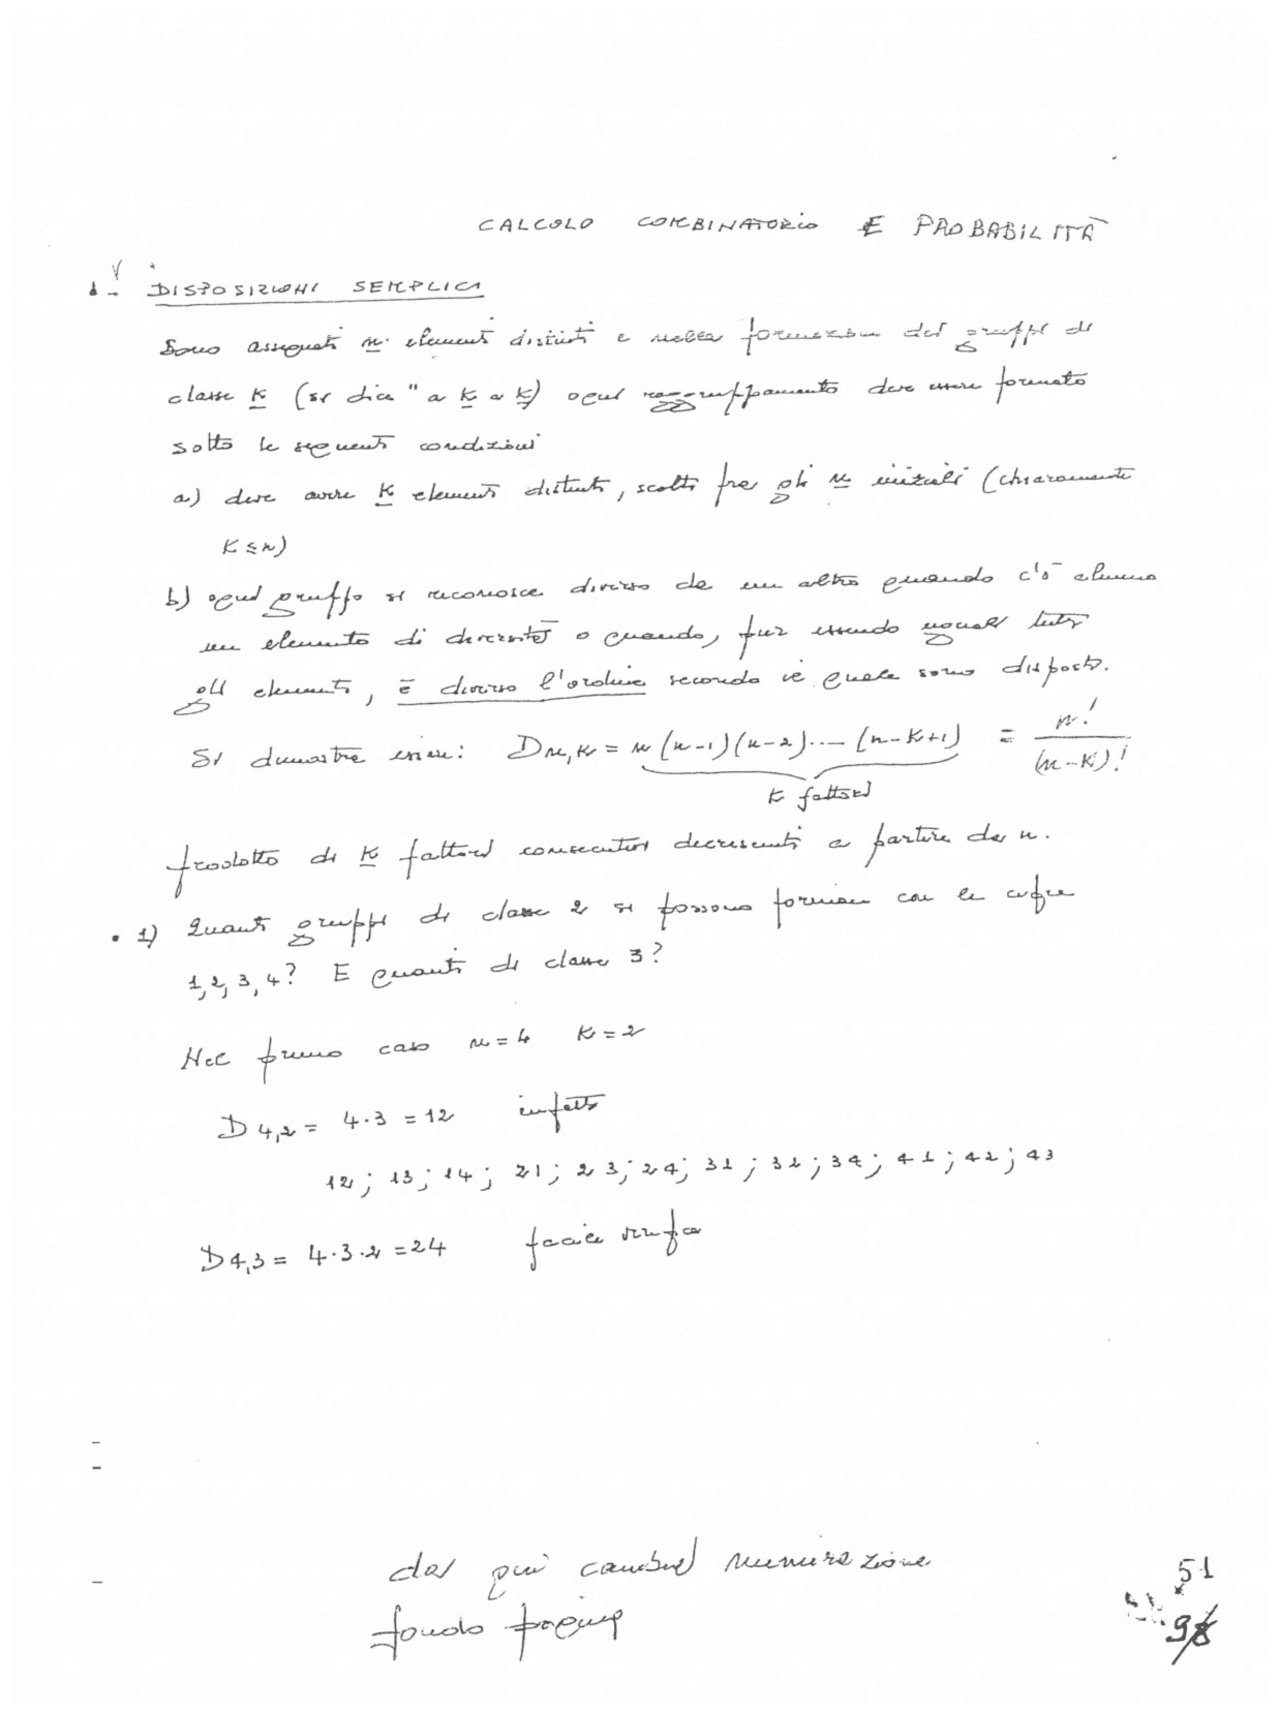 CALCOLO COMBINATORIO E PROBABILITÀ
1.- DISPOSIZIONI SEMPLICI
Sono assegnati n elementi distinti e nella formazione dei gruppi di
classe K (si dice "a K a K) ogni raggruppamento deve essere formato
sotto le seguenti condizioni
a) deve avere K elementi distinti, scelti fra gli n iniziali (chiaramente
K ≤ n)
b) ogni gruppo si riconosce diverso da un altro quando c'è almeno
un elemento di diversità o quando, pur essendo uguali tutti
gli elementi, è diverso l'ordine secondo il quale sono disposti.
Si dimostra essere: Dn,K = n(n-1)(n-2)....(n-K+1) = n!/(n-K)!
K fattori
prodotto di K fattori consecutivi decrescenti a partire da n.
• 1) Quanti gruppi di classe 2 si possono formare con le cifre
1,2,3,4? E quanti di classe 3?
Nel primo caso n=4 K=2
D4,2 = 4·3 = 12 infatti
12; 13; 14; 21; 23; 24; 31; 32; 34; 41; 42; 43
D4,3 = 4·3·2 = 24 facile verifica
da qui cambia numerazione
fondo pagina
51
98